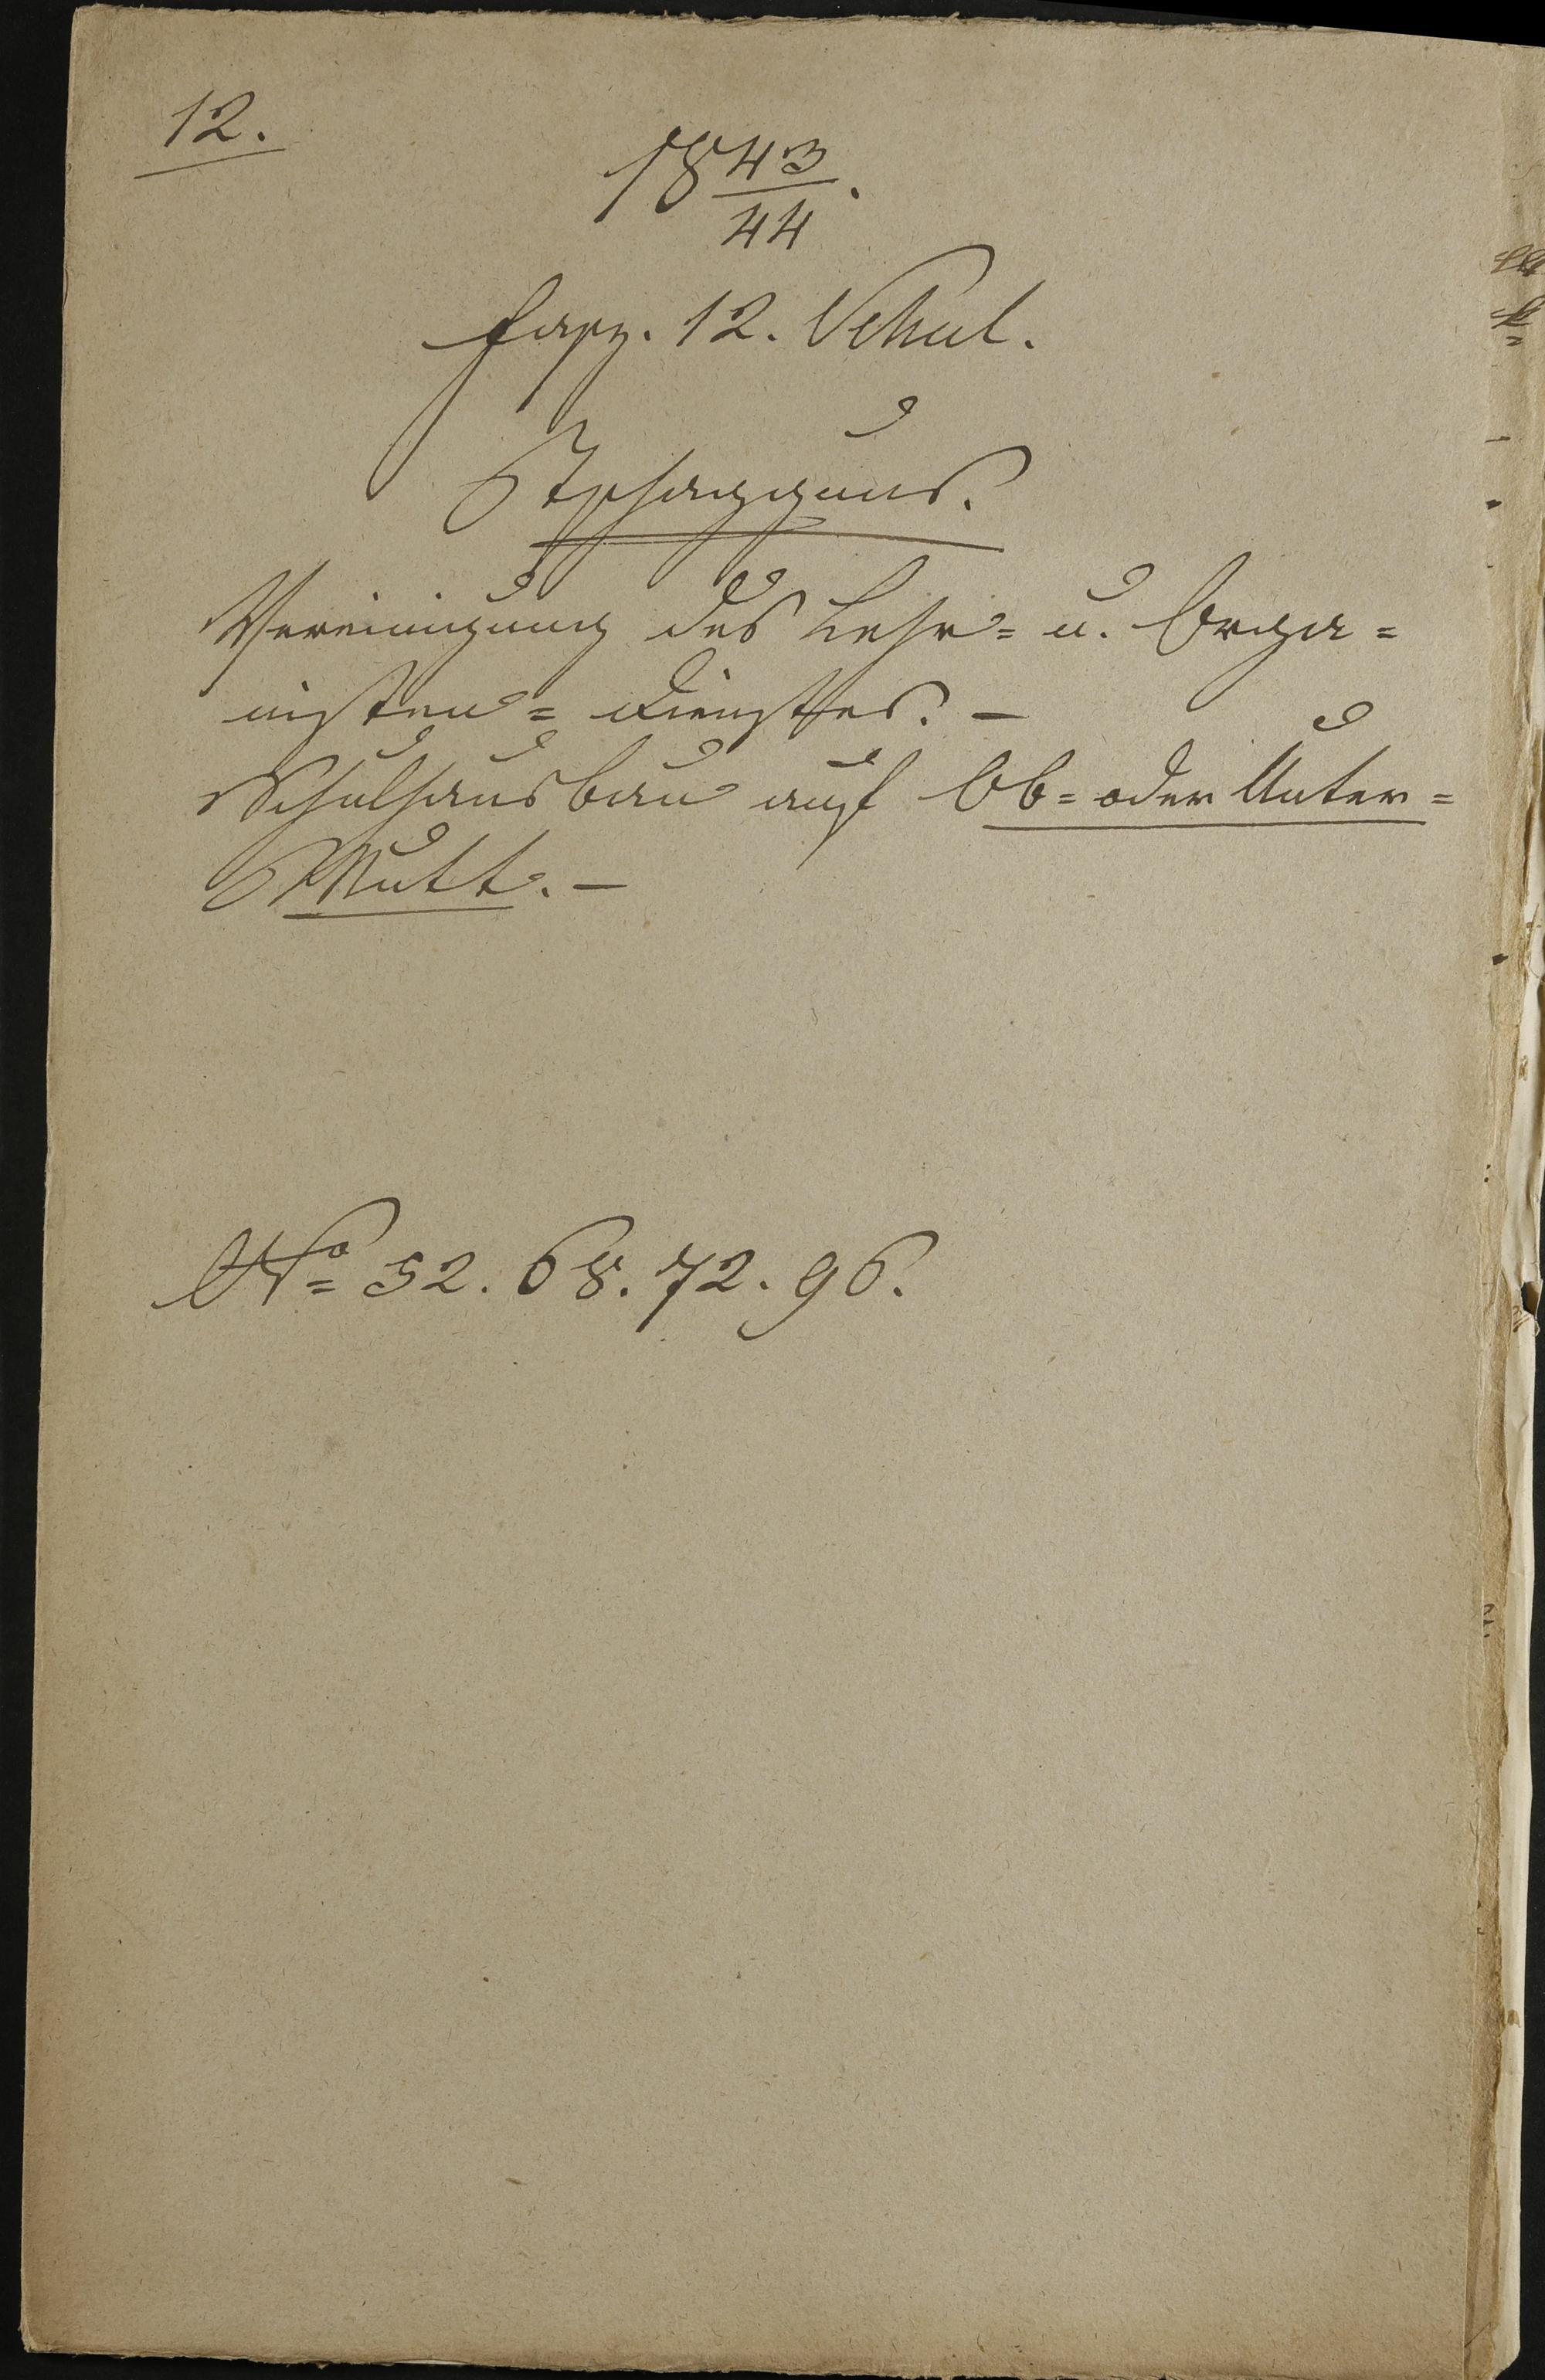 12.
1843/44.
Fasz. 12. Schul.
Tschagguns.
Vereinigung des Lehr= u. Orga=
nisten=Dienstes. —
Schulhausbau auf Ob= oder Unter=
Mutt. —
No= 52. 68. 72. 96.